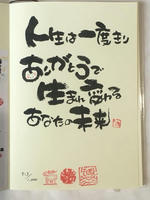 人生は一度きり
ありがとうで
生まれ変わる
あなたの未来